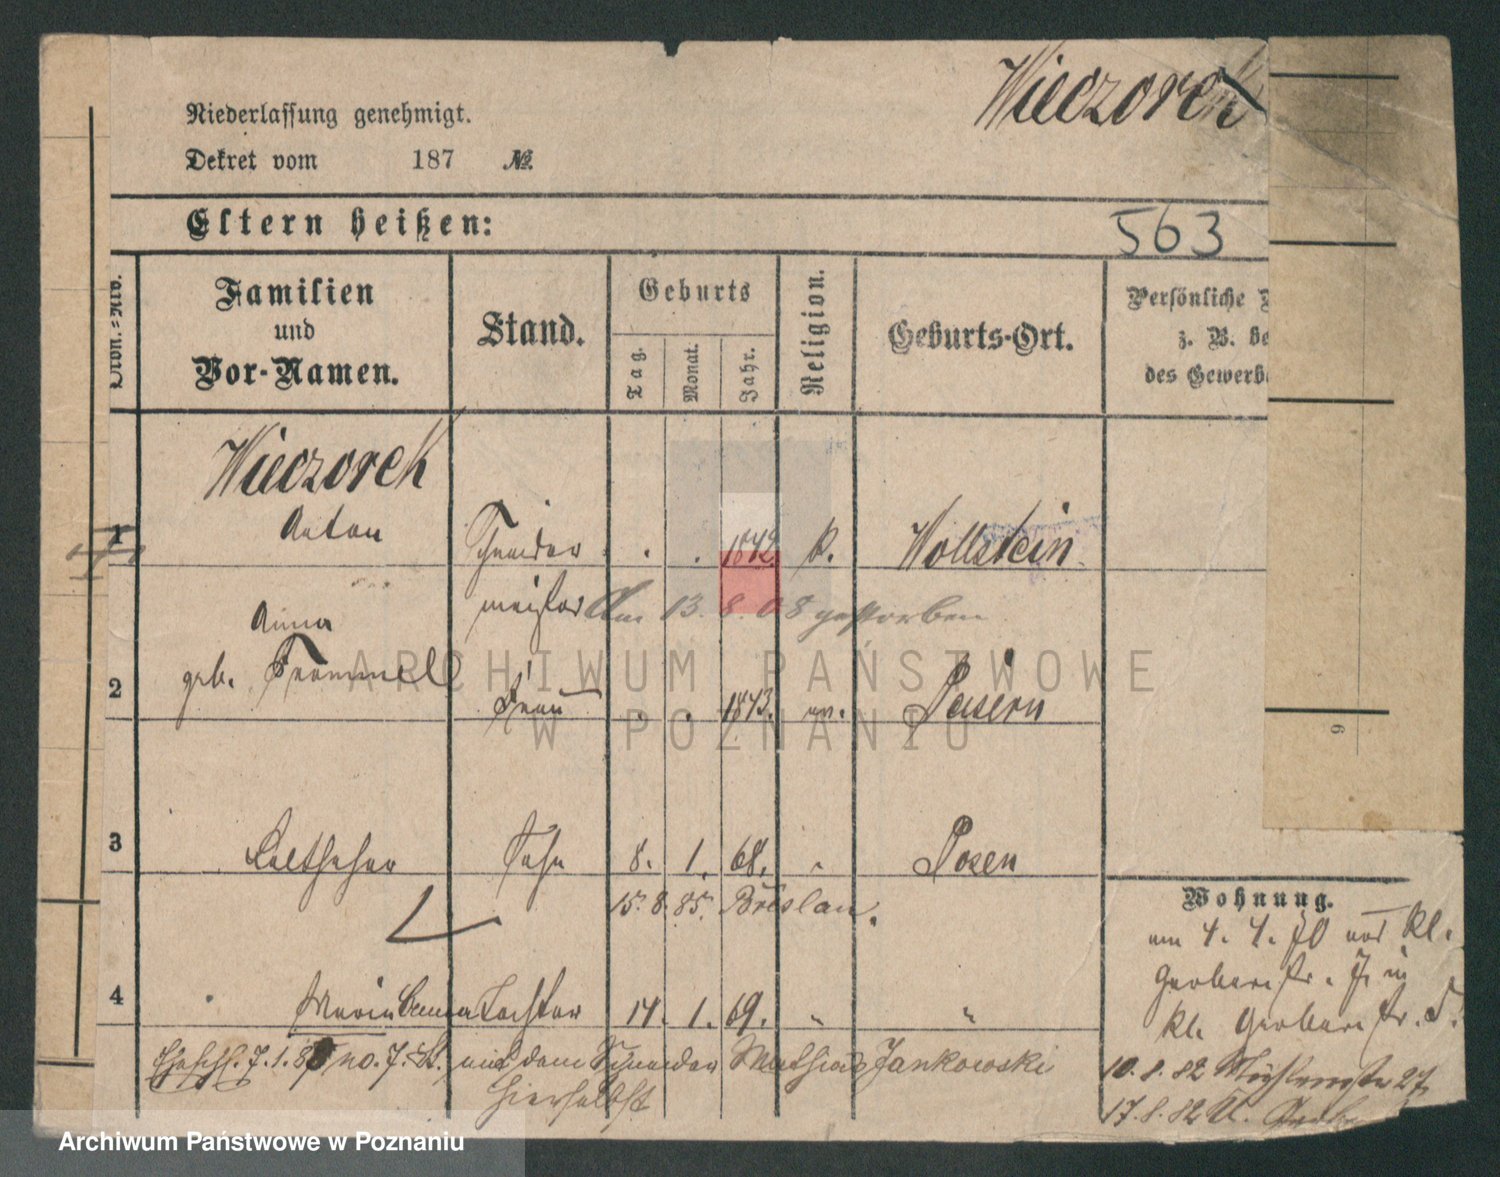 Wieczorek
Niederlassung genehmigt.
Dekret vom 187 №
Eltern heißen:
563
Familien
und
Vor-Namen.
Stand.
Geburts
Tag.
Monat.
Jahr.
Religion.
Geburts-Ort.
Persönliche
z. B. be
des Gewerb
Wieczorek
1 Anton Schneider . . 1842. k. Wollstein
meister Am 13. 8. 08 gestorben
Anna
geb.
2 Frau . . 1843. ev. Posen
3 Sohn 8. 1. 68. " Posen
15. 8. 85. Breslau.
Wohnung.
am 4. 4. 70 von kl.
Gerberstr. 7. in
kl. Gerberstr. 5.
4 Maria Tochter 14. 1. 69. " "
7. 1. no. 7. mit dem Schneider Mathias Jankowski
hierselbst
10. 8. 82 27
17. 8. 82
6
ARCHIWUM PAŃSTWOWE
W POZNANIU
Archiwum Państwowe w Poznaniu